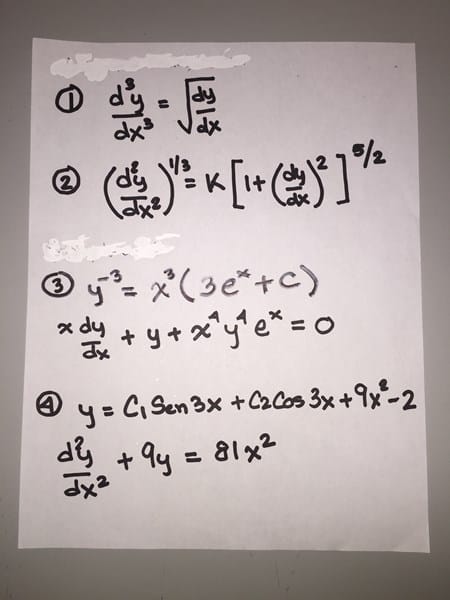 ① d³y/dx³ = √(dy/dx)
② (d²y/dx²)^1/3 = K [1+(dy/dx)²]^5/2
③ y⁻³ = x³(3eˣ+C)
x dy/dx + y + x⁴y⁴eˣ = 0
④ y = C₁ Sen3x + C₂ Cos 3x + 9x² - 2
d²y/dx² + 9y = 81x²